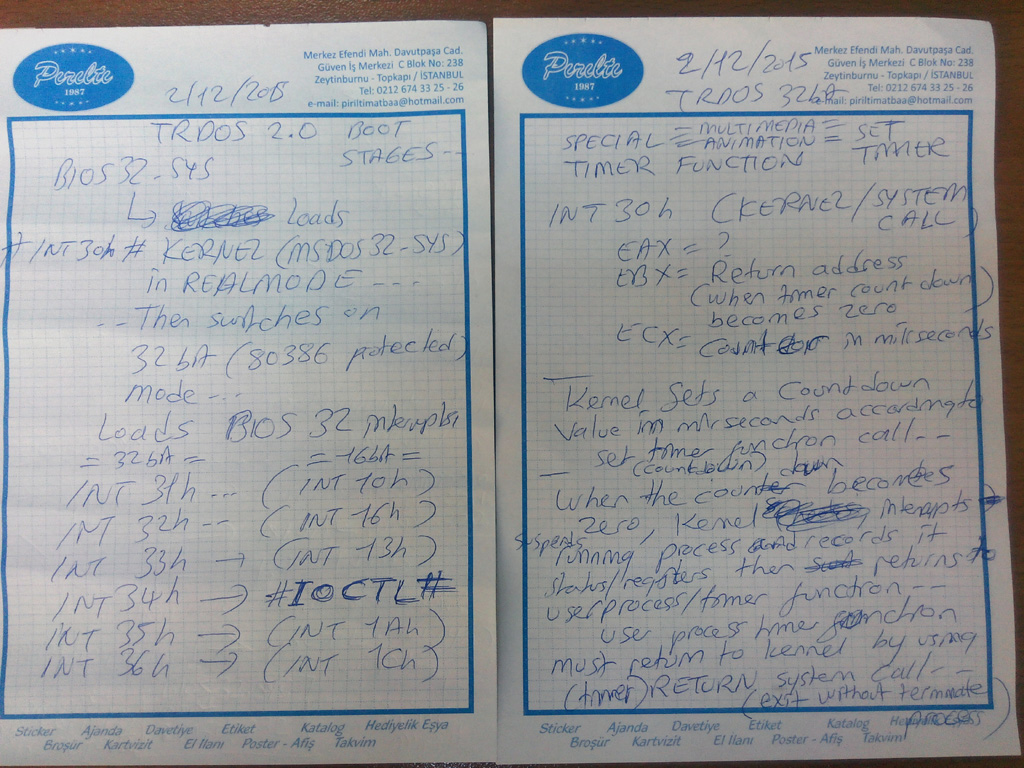 Perelte
1987
Merkez Efendi Mah. Davutpaşa Cad.
Güven İş Merkezi C Blok No: 238
Zeytinburnu - Topkapı / İSTANBUL
Tel: 0212 674 33 25 - 26
e-mail: piriltimatbaa@hotmail.com
2/12/2015
TRDOS 2.0 BOOT
STAGES --
BIOS32-SYS
↳ Loads
#INT 30h# KERNEL (MSDOS32-SYS)
in REALMODE ---
-- Then switches on
32 bit (80386 protected)
mode ---
Loads BIOS 32 interrupts
= 32bit = = 16bit =
INT 31h --- (INT 10h)
INT 32h -- (INT 16h)
INT 33h → (INT 13h)
INT 34h → #IOCTL#
INT 35h → (INT 1Ah)
INT 36h → (INT 1Ch)
Sticker Ajanda Davetiye Etiket Katalog Hediyelik Eşya
Broşür Kartvizit El İlanı Poster - Afiş Takvim
Perelte
1987
Merkez Efendi Mah. Davutpaşa Cad.
Güven İş Merkezi C Blok No: 238
Zeytinburnu - Topkapı / İSTANBUL
Tel: 0212 674 33 25 - 26
e-mail: piriltimatbaa@hotmail.com
2/12/2015
TRDOS 32bit
SPECIAL = MULTIMEDIA = SET
= ANIMATION =
TIMER FUNCTION TIMER
INT 30h (KERNEL/SYSTEM
CALL)
EAX = ?
EBX = Return address
(when timer count down)
becomes zero
ECX = Count in milliseconds
— Kernel sets a Countdown
Value in milliseconds according to
set timer function call--
(countdown) down
— When the counter becomes
zero, Kernel interrupts
suspends
running process and records it
status/registers then returns to
user process/timer function --
user process timer function
must return to kernel by using
(timer) RETURN system call--
(exit without terminate
process)
Sticker Ajanda Davetiye Etiket Katalog
Broşür Kartvizit El İlanı Poster - Afiş Takvim